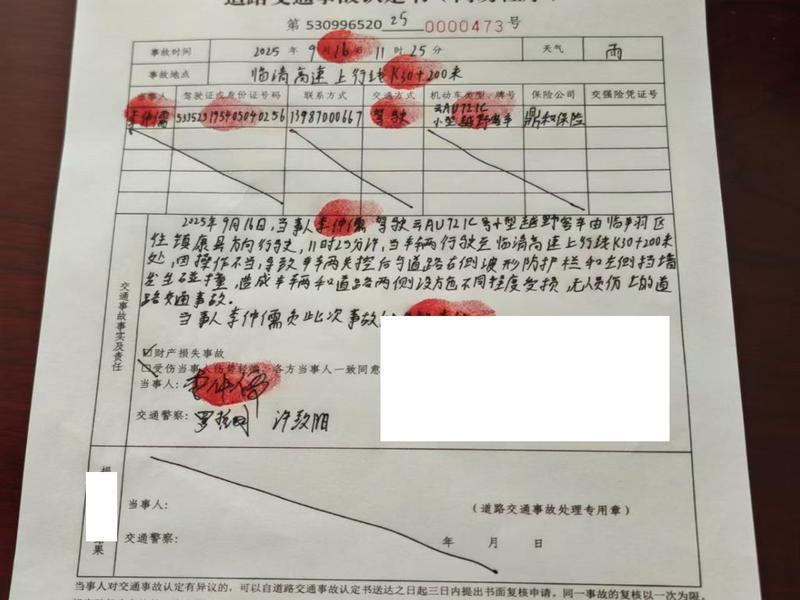 第 530996520 25 0000473 号
事故时间 2025 年 9 月 16 日 11 时 25 分 天气 雨
事故地点 临清高速上行线K30+200米
当事人 驾驶证或身份证号码 联系方式 交通方式 机动车类型、牌号 保险公司 交强险凭证号
李仲儒 533523195405040256 13987000667 驾驶 云AU721C 小型越野客车 鼎和保险
交通事故事实及责任
2025年9月16日,当事人李仲儒驾驶云AU721C号小型越野客车由临翔区
往镇康县方向行驶,11时25分许,当车辆行驶至临清高速上行线K30+200米
处,因操作不当,导致车辆失控后与道路右侧波形防护栏和左侧挡墙
发生碰撞,造成车辆和道路两侧设施不同程度受损,无人员伤亡的道
路交通事故。
当事人李仲儒负此次事故
☑财产损失事故
□受伤当事人伤势轻微,各方当事人一致同意
当事人: 李仲儒
交通警察:
当事人:
(道路交通事故处理专用章)
交通警察: 年 月 日
果
当事人对交通事故认定有异议的,可以自道路交通事故认定书送达之日起三日内提出书面复核申请。同一事故的复核以一次为限。